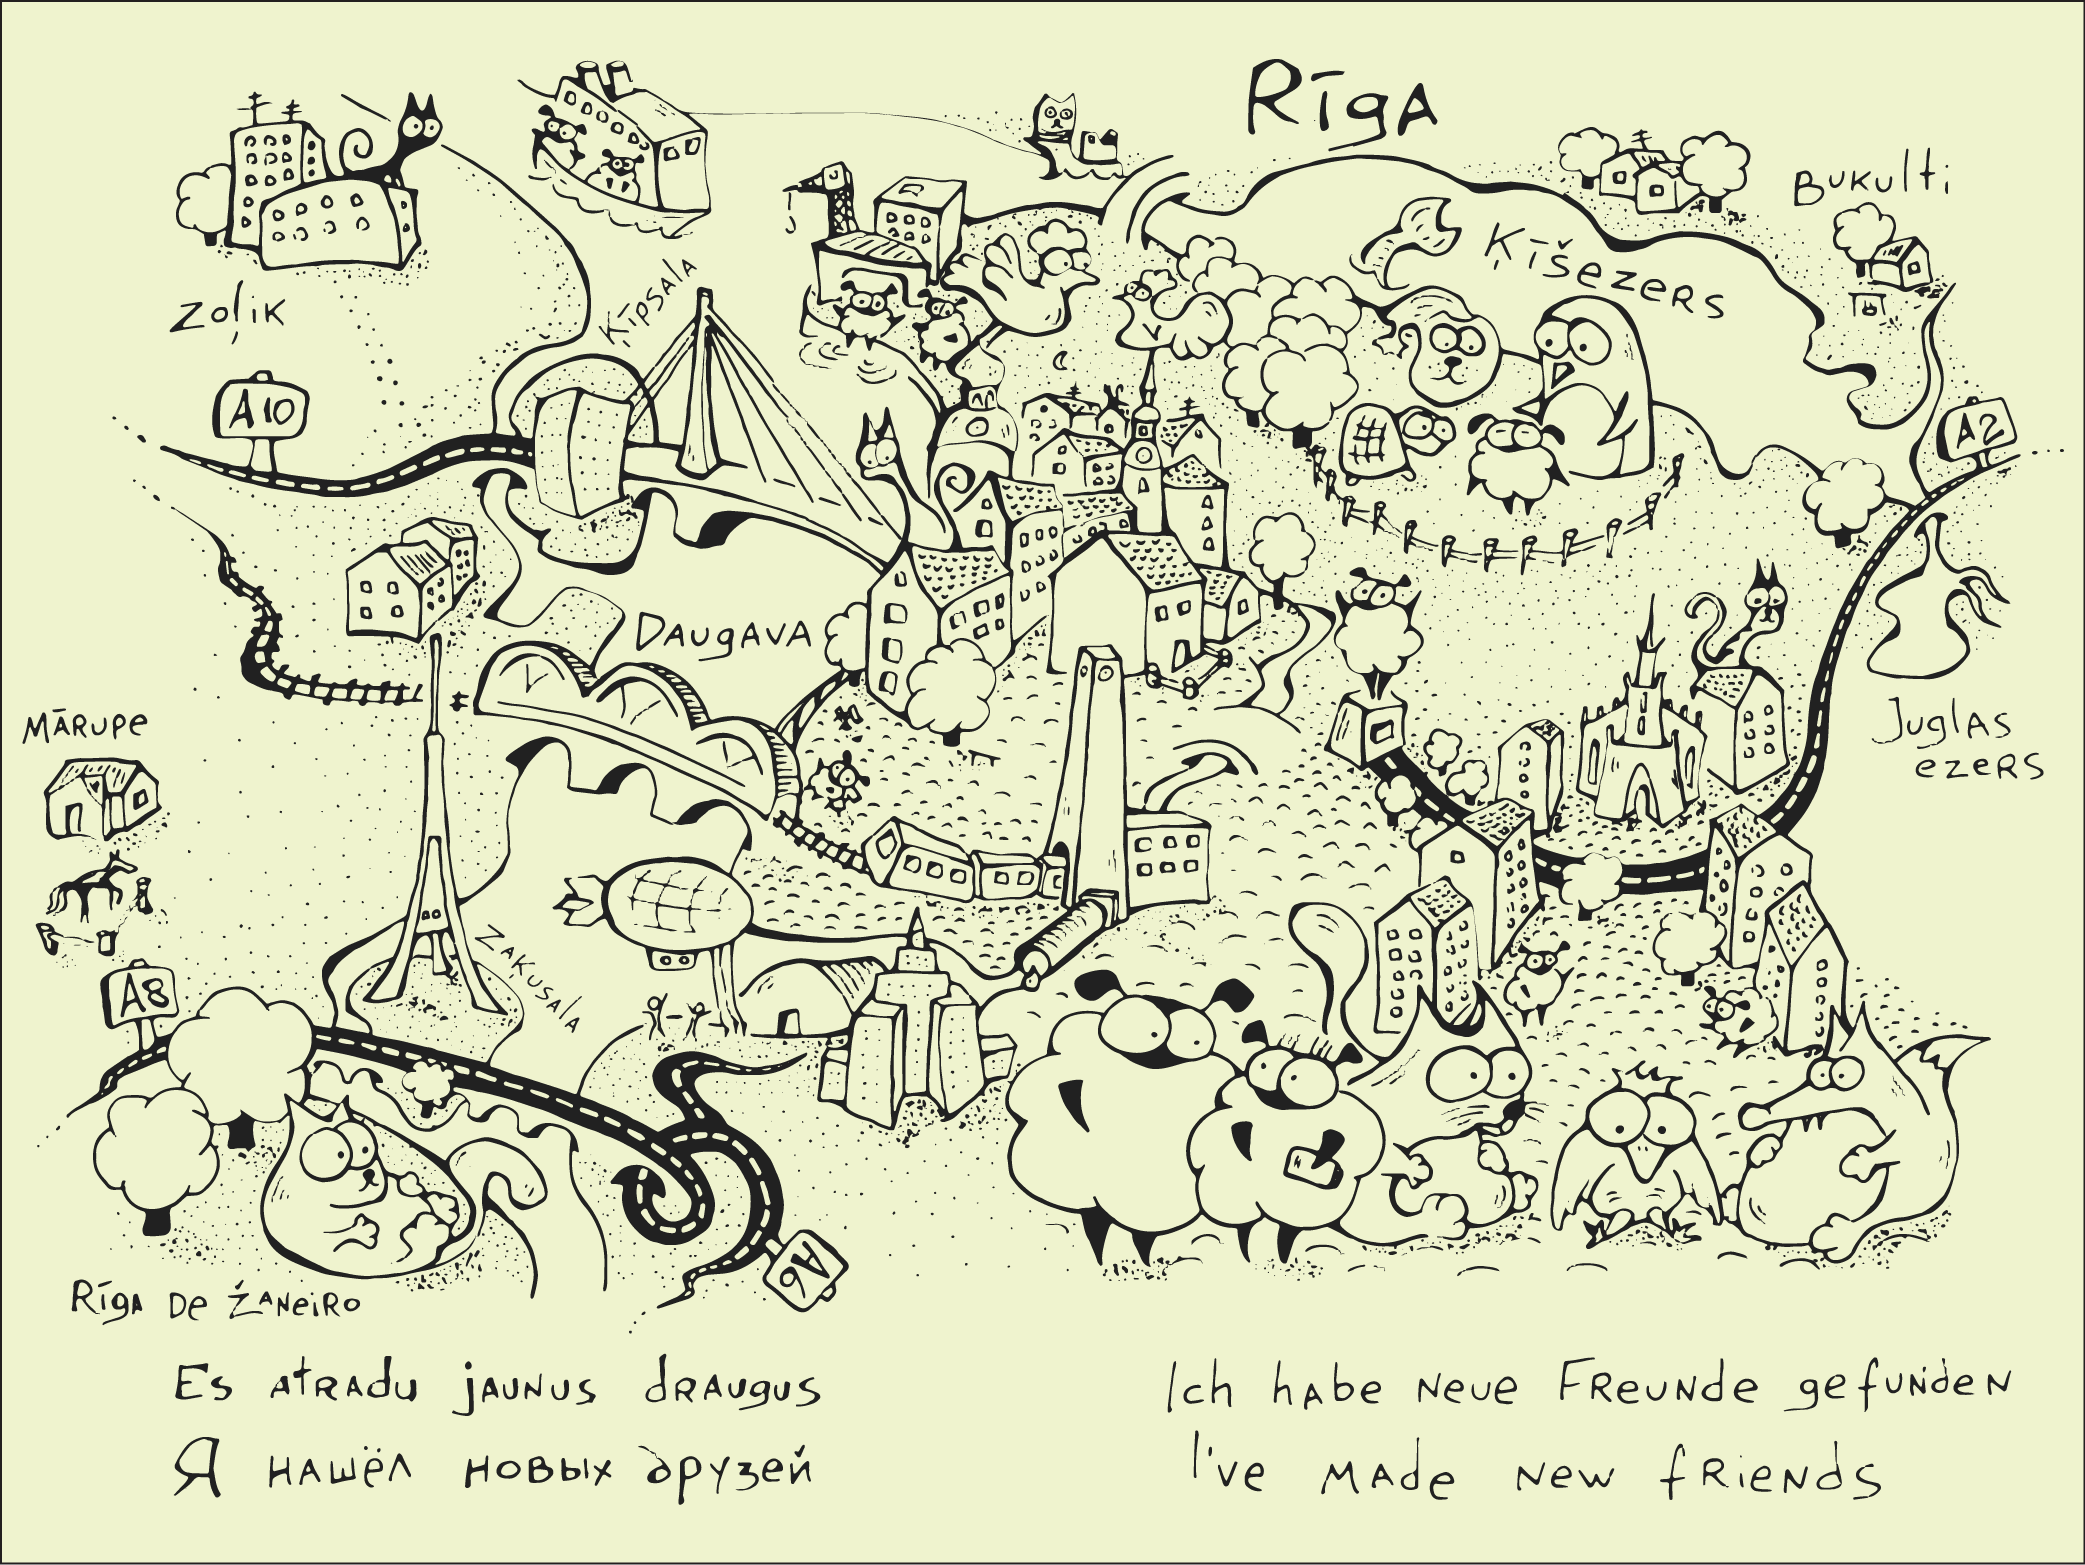 Rīga
Bukulti
Ķīšezers
Zoļik
Ķīpsala
A10
A2
Daugava
Mārupe
Juglas
ezers
A8
Zakusala
A6
Rīga de Žaneiro
Es atradu jaunus draugus
Я нашёл новых друзей
Ich habe neue Freunde gefunden
I've made new friends